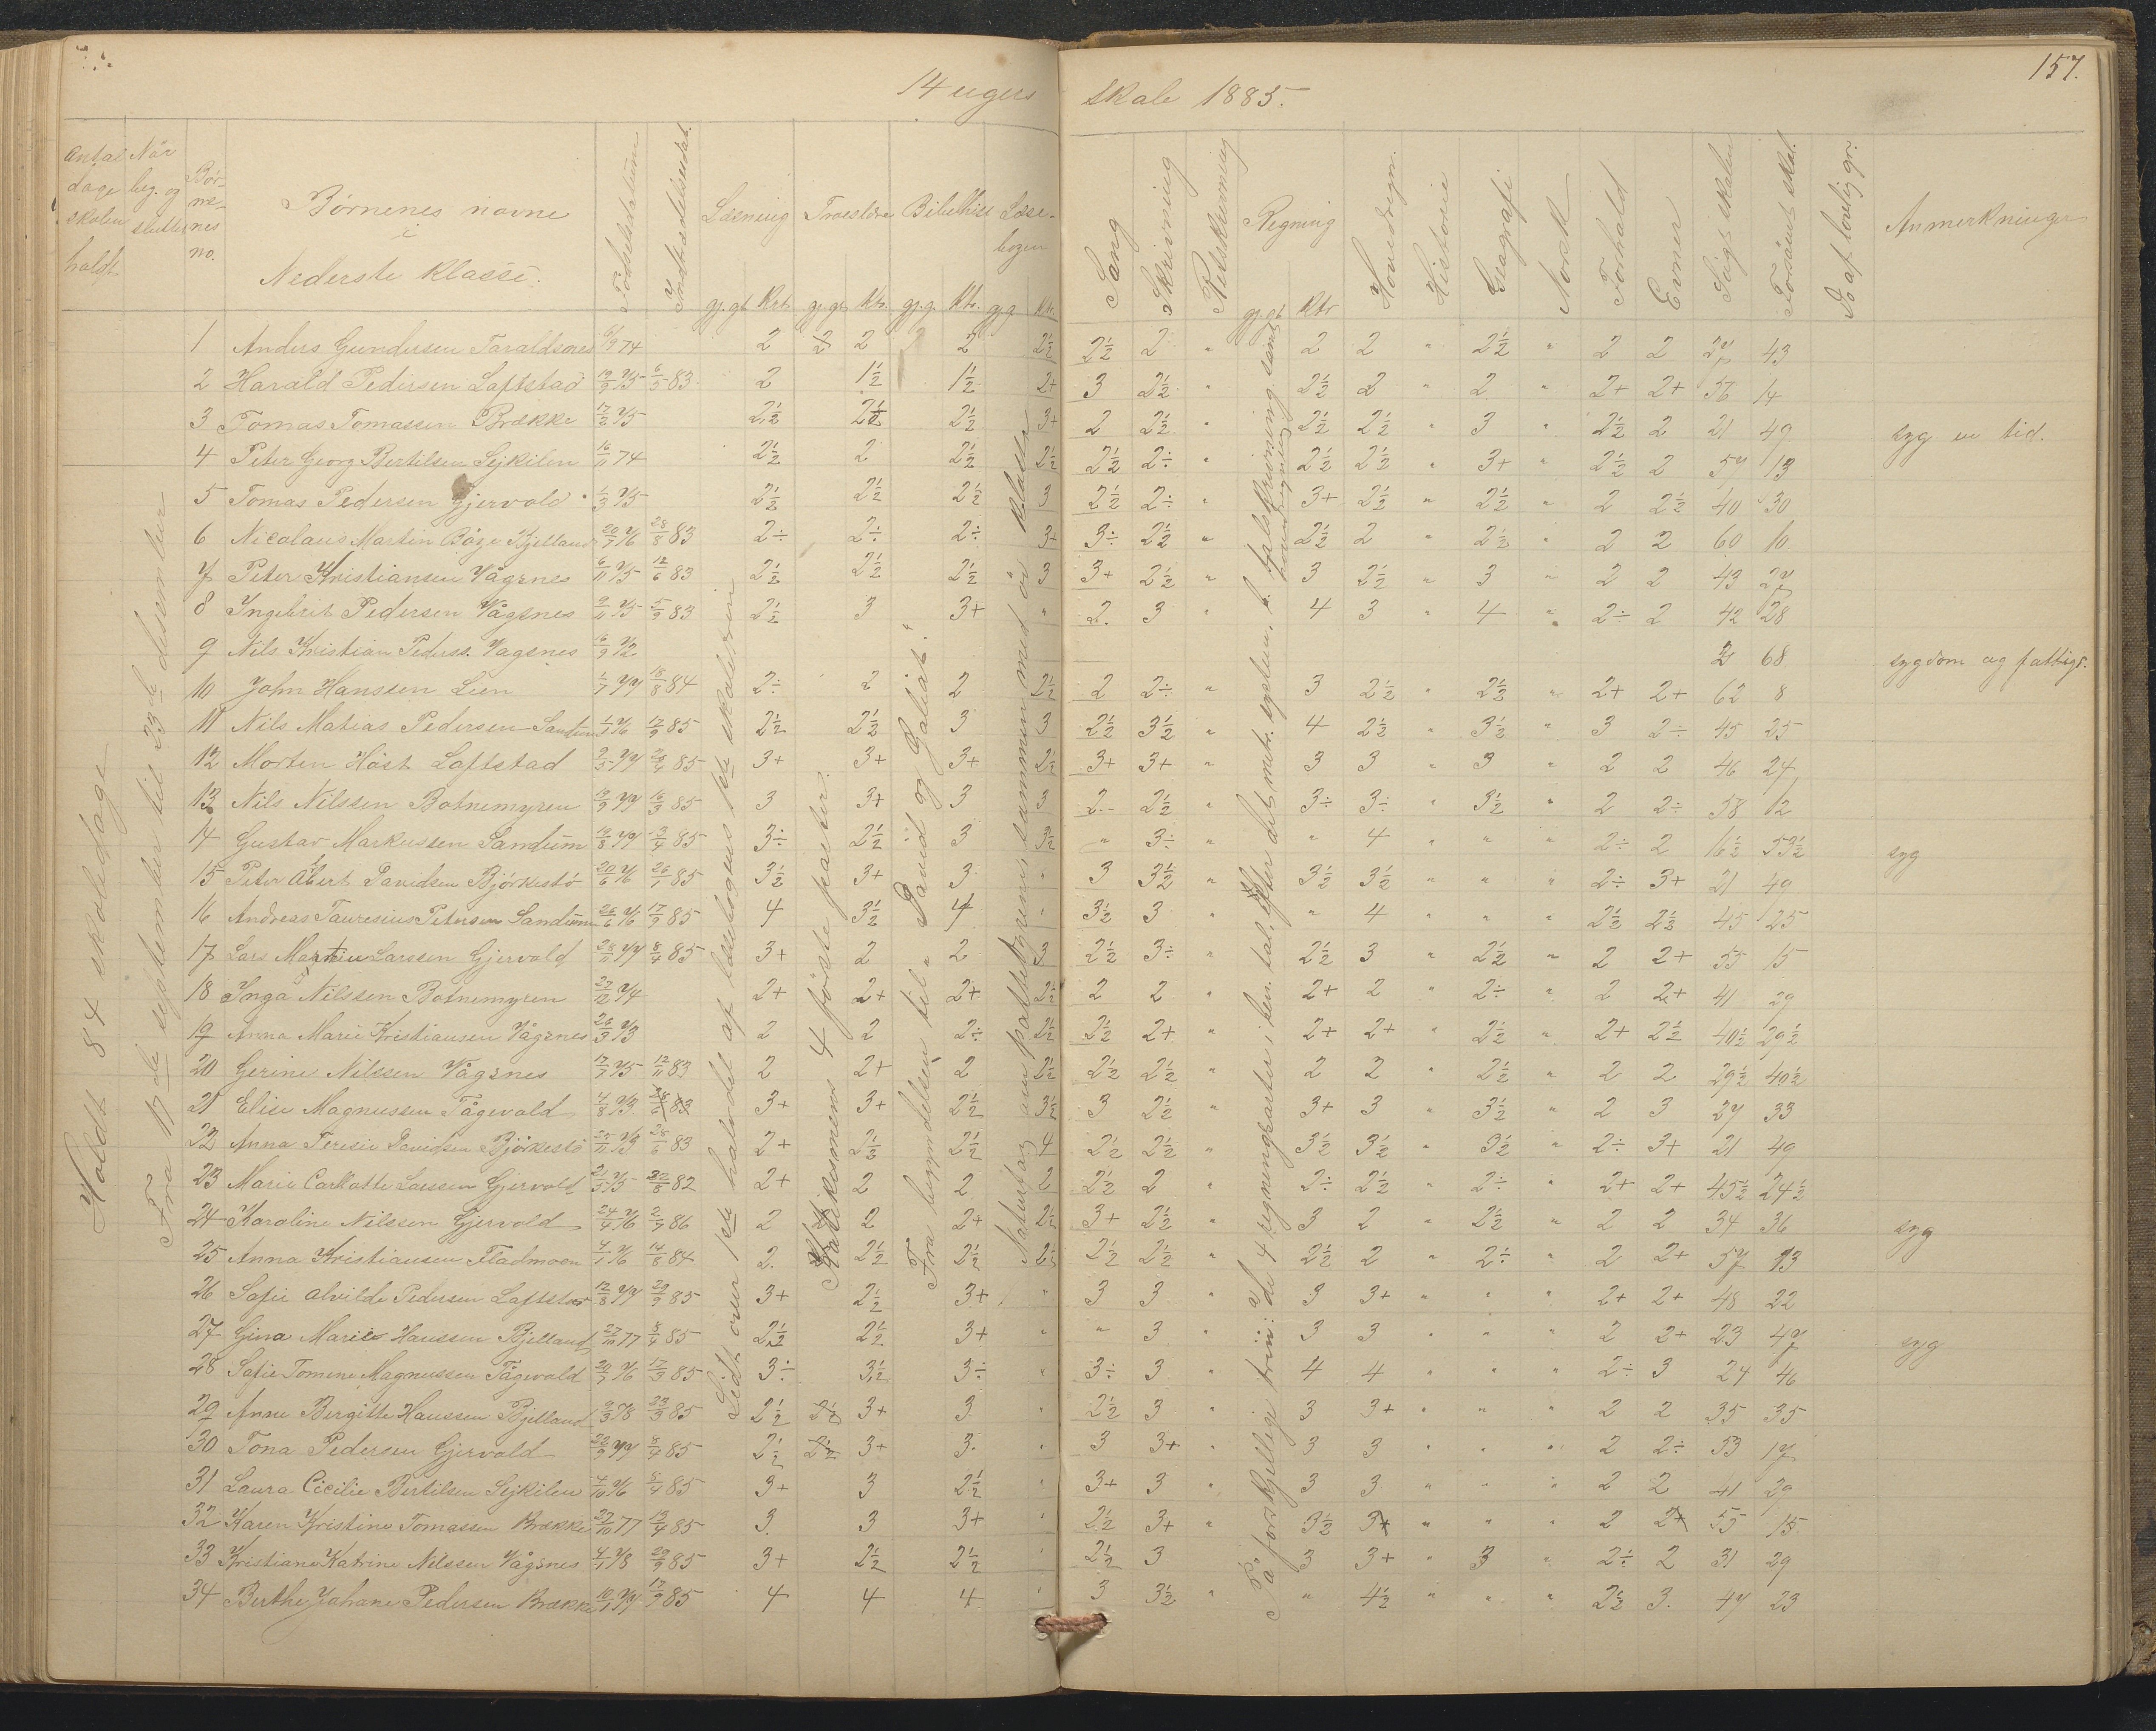 157.
14 ugers skole 1885.
Antal dage skolen holdt
Når beg. og sluttes
Børnenes no.
Børnenes navne i Nederste klasse.
Fødselsdatum
Indtrædelsesdat.
Læsning
Troeslære
Bibelhist
Læsebogen
Sang
Skrivning
Retskrivning
Regning
Hovedregn.
Historie
Geografi
Norsk
Forhold
Evner
Søgt skolen
Forsømt skol.
Do af lovlig gr.
Anmerkninger
gj.gt. Kr. gj.gt. Kr. gj.g. Kr. gj.g Kr. gj.gt. Kr
Holdt 84 skoledage
Fra 17de september til 23de desember
Lidt over 1ste halvdel af læsebogens 1ste skoletrin
Katekismens 4 første parter.
Fra begyndelsen til "David og Goliat."
Naturfag
På forskjellige trin: a) de 4 regningsarter i hen. tal, efter det metr. system, b. talskrivning samt hovedregning
1 Anders Gundersen Taraldsnes 6/9 74 2 2 2 2 2½ 2½ 2 " 2 2 " 2½ " 2 2 27 43
2 Harald Pedersen Loftstad 19/9 75 6/5 83 2 1½ 1½ 2+ 3 2½ " 2½ 2 " 2 " 2+ 2+ 56 14
3 Tomas Tomassen Brække 17/2 75 2½ 2½ 2½ 3+ 2 2½ " 2½ 2½ " 3 " 2½ 2 21 49 syg en tid.
4 Peter Georg Bertilsen Sejkilen 16/11 74 2½ 2 2½ 2½ 2½ 2÷ " 2½ 2½ " 3+ " 2½ 2 57 13
5 Tomas Pedersen Gjervold 1/3 75 2½ 2½ 2½ 3 2½ 2÷ " 3+ 2½ " 2½ " 2 2½ 40 30
6 Nicolaus Martin Böze Kjelland 20/7 76 28/8 83 2÷ 2÷ 2÷ 3+ 3÷ 2½ " 2½ 2 " 2½ " 2 2 60 10
7 Peter Kristiansen Vågsnes 6/11 75 12/6 83 2½ 2½ 2½ 3 3+ 2½ " 3 2½ " 3 " 2 2 43 27
8 Ingebrit Pedersen Vågsnes 9/2 75 5/9 83 2½ 3 3+ " 2. 3 " 4 3 " 4 " 2÷ 2 42 28
9 Nils Kristian Pederss. Vagsnes 16/9 72 2 68 sygdom og fattigd.
10 John Hanssen Lien 1/7 77 18/8 84 2÷ 2 2 2½ 2 2÷ " 3 2½ " 2½ " 2+ 2+ 62 8
11 Nils Matias Pedersen Sandum 1/1 76 17/9 85 2½ 2½ 3 3 2½ 3½ " 4 2½ " 3½ " 3 2÷ 45 25
12 Morten Höst Loftstad 9/5 77 29/4 85 3+ 3+ 3+ 2½ 3+ 3+ " 3 3 " 3 " 2 2 46 24
13 Nils Nilssen Botnemyren 19/9 77 16/3 85 3 3+ 3 3 2- 2½ " 3÷ 3÷ " 3½ " 2 2÷ 58 12
14 Gustav Markussen Sandum 19/8 77 3/4 85 3÷ 2½ 3 3½ " 3÷ " " 4 " " " 2÷ 2 16½ 53½ syg
15 Peter Albert Davidsen Björkestö 20/6 76 26/1 85 3½ 3+ 3 " 3 3½ " 3½ 3½ " " " 2÷ 3+ 21 49
16 Andreas Tauresius Petersen Sandum 26/6 76 17/9 85 4 3½ 4 " 3½ 3 " " 4 " " " 2½ 2½ 45 25
17 Lars Martin Larssen Gjervold 28/11 77 8/4 85 3+ 2 2 3 2½ 3÷ " 2½ 3 " 2½ " 2 2+ 55 15
18 Inga Nilssen Botnemyren 27/12 74 2+ 2+ 2+ 2½ 2 2 " 2+ 2 " 2÷ " 2 2+ 41 29
19 Anna Marie Kristiansen Vågsnes 26/3 73 2 2 2÷ 2½ 2½ 2+ " 2+ 2+ " 2½ " 2+ 2½ 40½ 29½
20 Gerine Nilssen Vågsnes 17/7 75 12/11 83 2 2+ 2 2½ 2½ 2½ " 2 2 " 2½ " 2 2 29½ 40½
21 Elise Magnussen Tågevold 4/8 73 28/6 83 3+ 3+ 2½ 3½ 3 2½ " 3+ 3 " 3½ " 2 3 37 33
22 Anna Teresie Davidsen Björkestö 25/11 73 28/6 83 2+ 2½ 2½ 4 2½ 2½ " 3½ 3½ " 3½ " 2÷ 3+ 21 49
23 Marie Carlotte Larssen Gjervold 21/5 75 22/8 82 2+ 2 2 2 2½ 2 " 2÷ 2½ " 2÷ " 2+ 2+ 45½ 24½
24 Karoline Nilssen Gjervold 24/4 76 2/7 86 2 2 2+ 2½ 3+ 2½ " 3 2 " 2½ " 2 2 34 36 syg
25 Anna Kristiansen Fladmoen 4/1 76 14/8 84 2. 2½ 2½ 2½ 2½ 2½ " 2½ 2 " 2÷ " 2 2+ 57 13
26 Sofie Alvilde Pedersen Loftstad 12/8 77 29/9 85 3+ 2½ 3+ " 3 3 " 3 3+ " " " 2+ 2+ 48 22
27 Gina Marie Hanssen Bjelland 27/10 77 8/4 85 2½ 2½ 3+ " " 3 " 3 3 " " " 2 2+ 23 47 syg
28 Sofie Tomine Magnussen Tågevold 20/7 76 17/3 85 3÷ 3½ 3÷ " 3÷ 3 " 4 4 " " " 2÷ 3 24 46
29 Anne Bergitte Hanssen Bjelland 9/3 78 23/3 85 2½ 2½ 3+ 3 " 2½ 3 " 3 3+ " " " 2 2 35 35
30 Tona Pedersen Gjervold 22/9 77 8/4 85 2½ 2½ 3+ 3 " 3 3+ " 3 3 " " " 2 2÷ 53 17
31 Laura Cicilie Bertilsen Sejkilen 4/10 76 8/4 85 3+ 3 2½ " 3+ 3 " 3 3 " " " 2 2 41 29
32 Karen Kristine Tomassen Brække 27/10 77 13/4 85 3 3 3+ " 2½ 3+ " 3½ 3+ " " " 2 2+ 55 15
33 Kristiane Katrine Nilssen Vågsnes 4/1 78 29/9 85 3+ 2½ 2½ " 2½ 3 " 3 3+ " 3 " 2÷ 2 31 29
34 Berthe Johane Pedersen Brække 10/1 77 17/9 85 4 4 4 " 3 3½ " " 4½ " " " 2½ 3. 47 23